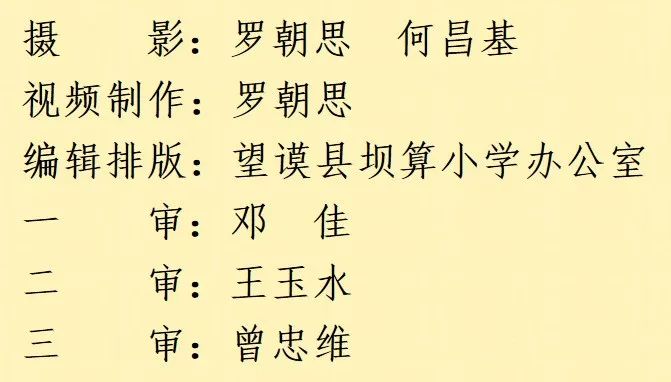 摄　　影：罗朝思　何昌基
视频制作：罗朝思
编辑排版：望谟县坝算小学办公室
一　　审：邓　佳
二　　审：王玉水
三　　审：曾忠维